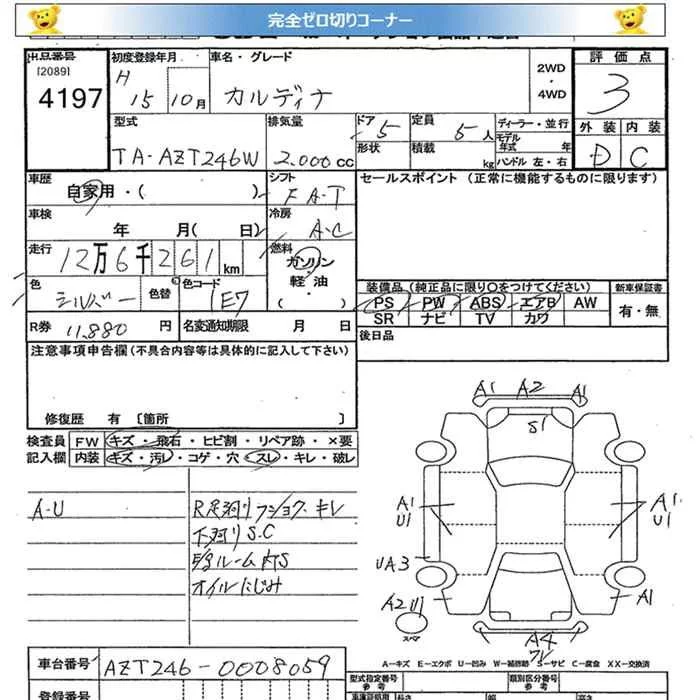 完全ゼロ切りコーナー
出品番号 初度登録年月 車名・グレード 評価点
[2089] H 2WD
4197 15年 10月 カルディナ ・ 3
4WD
型式 排気量 ドア 5 定員 5人 ディーラー・並行 外装 内装
TA-AZT246W 2.000cc 形状 積載 kg モデル年式 年 D C
ハンドル 左・右
車歴 シフト セールスポイント (正常に機能するものに限ります)
自家用・( ) FA-T
車検 冷房
年 月( 日) A-C
走行 燃料
12万6千261km ガソリン
軽・油
・( )
色 色替 色コード 装備品(純正品に限り○をつけてください) 新車保証書
シルバー 1E7 PS PW ABS エアB AW 有・無
SR ナビ TV カワ
R券 11,880 円 名変通知期限 月 日 後日品
注意事項申告欄(不具合内容等は具体的に記入して下さい)
修復歴 有 [箇所 ]
検査員 FW キズ・飛石・ヒビ割・リペア跡・×要
記入欄 内装 キズ・汚レ・コゲ・穴・スレ・キレ・破レ
A-U
R足廻りブショク・キレ
下廻りS.C
室ルームキS
オイルにじみ
A1 A2 A1
S1
A1 A1
U1 U1
UA3
A2 U1 A1
スペア
A4
A-キズ E-エクボ U-凹み W-補修跡 S-サビ C-腐食 XX-交換済
車台番号 AZT246-0008059
型式指定番号 参考 類別区分番号 参考
登録番号 長さ 幅 高さ